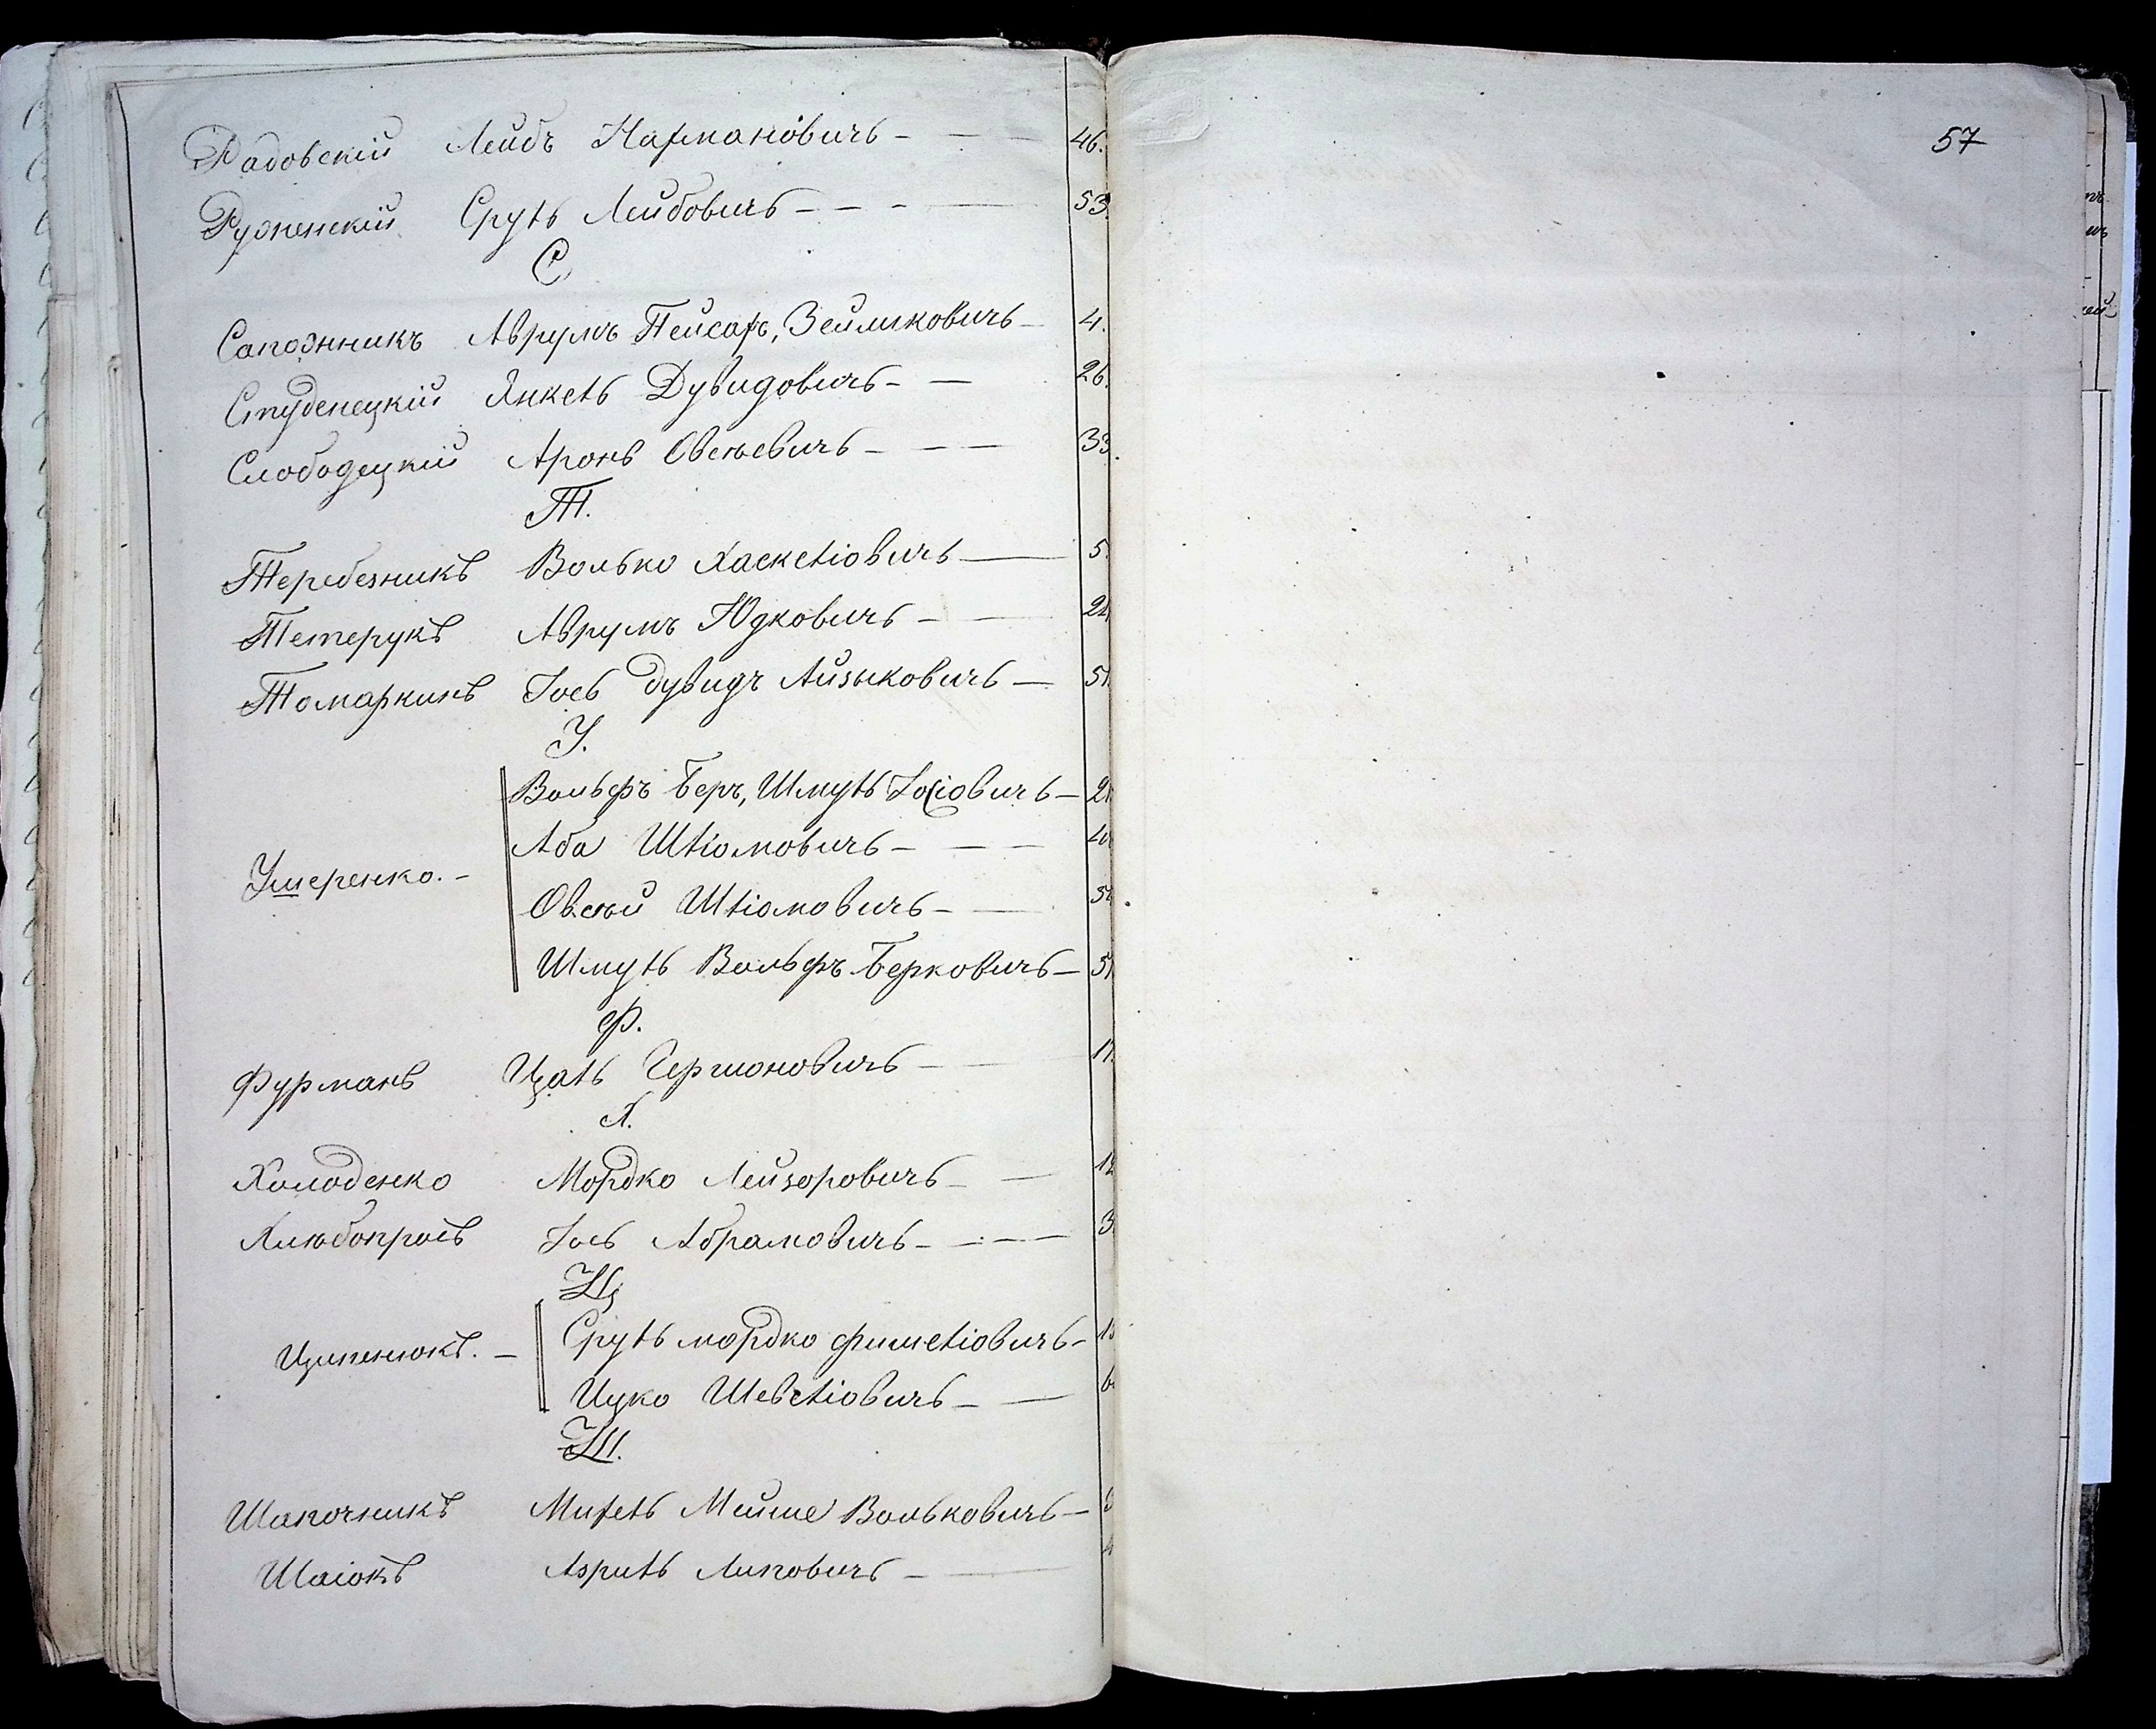 Радовскій Лейбъ Нахмановичъ - - - 46.
Руженскій Сруль Лейбовичъ - - - - 53.
С
Сапожникъ Аврумъ Пейсахъ, Зейликовичъ - 4.
Студенецкій Янкель Дувидовичъ - - 26.
Слободецкій Аронъ Овсѣевичъ - - - 33.
Т.
Теребезникъ Волько Хаскеліовичъ - 5.
Тетерукъ Аврумъ Юдковичъ - -
Томаркинъ Іось Дувидъ Айзиковичъ - 51.
У.
Вольфъ Беръ, Шмуль Іосіовичъ -
Аба Шліомовичъ - - -
Умеренко. -
Овсѣй Шліомовичъ - -
Шмуль Вольфъ Берковичъ -
Ф.
Фурманъ Цаль Гершоновичъ - -
Х.
Холоденко Мордко Лейзоровичъ - -
Хлѣбопросъ Іось Абрамовичъ - - -
Ц
Ципенюкъ. - Сруль мордко фишеліовичъ -
Ицко Шевеліовичъ - -
Ш.
Шапочникъ Михель Мейше Вольковичъ -
Шаіокъ Азриль Липовичъ - -
57